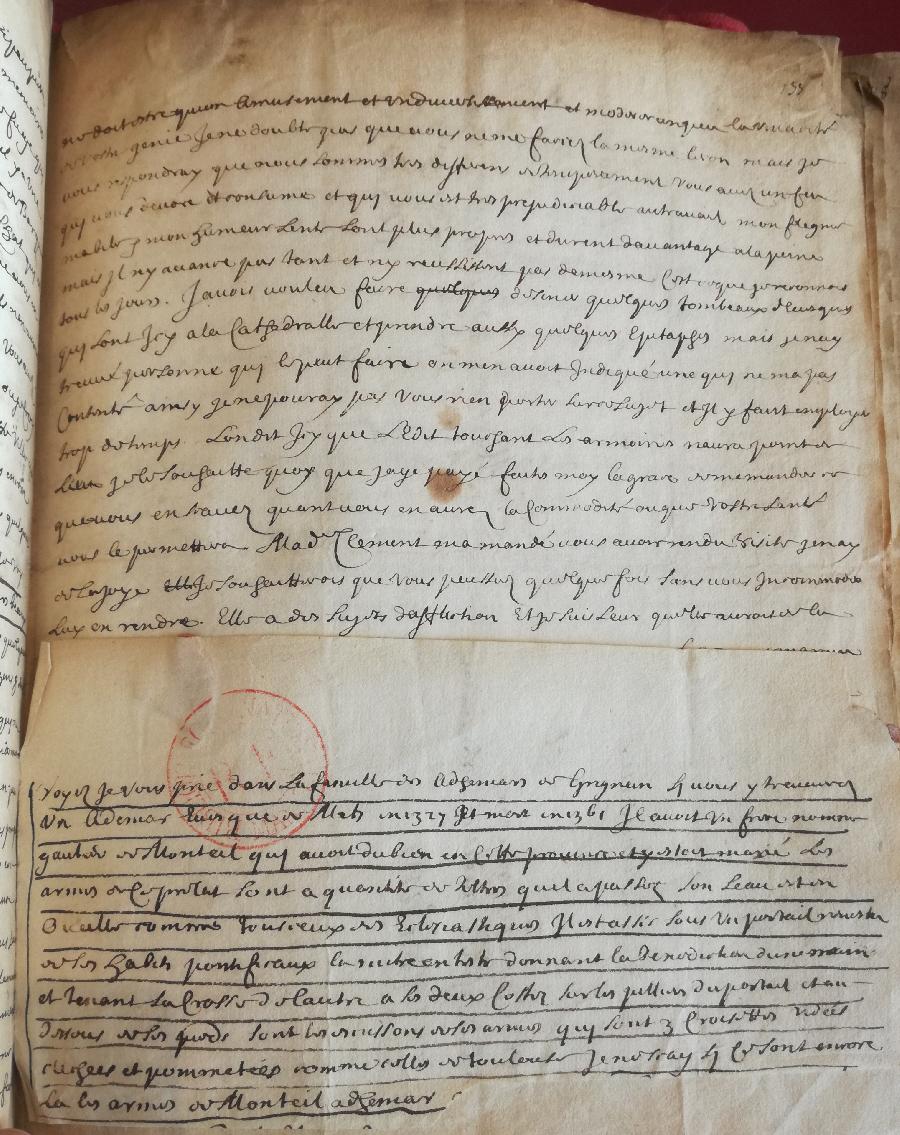 155
ne doit estre qu un amusement et un divertissement et moderer un peu la vivacité
de vostre genie je ne doubte pas que vous ne me faciez la mesme lecon mais je
vous respondray que nous sommes tres differens de temperament vous avez un feu
qui vous devore et consume et qui vous est tres prejudiciable au travail mon flegme
mon humeur lente sont plus propres et durent davantage a la peine
mais Il ny avance pas tant et ny reussissent pas de mesme C'est ce que je reconnois
tous les jours. J'avois vouleu faire quelques desiner quelques tombeaux d'Evesques
qui sont Jcy a la Cathedralle et prendre aussy quelques Epitaphes mais je nay
treuvé personne qui le peut faire on men avoit Indiqué une qui ne ma pas
Contenté ainsy je ne pouray pas vous rien porter sur ce sujet et Il y faut employer
trop de temps. L'on dit Jcy que L'Edit touchant les armoiries naura point de
Lieu je le souhaitte quoy que jaye payé faites moy la grace de me mander ce
que vous en scavez quant vous en aurez la Commodité ou que vostre santé
vous le permettra Mad.lle Clement ma mandé vous avoir rendu visite jen ay
de la joye Je souhaitterois que vous peussiez quelque fois sans vous Incommoder
Luy en rendre. Elle a des sujets d'affliction Et je suis seur quelle auroit de la
Voyez Je vous prie dans La famille des Adhemars de Grignan sy vous y treuverez
Un Ademar Evesque de Mets en 1327 et mort en 1361 Jl avoit un frere nommé
gautier de Monteil qui avoit du bien en Cette province et y estoit marié Les
armes de Ce prelat sont a quantité de Tiltres qu'il a passez son seau est en
Ovalle comme tous ceux des Ecclesiastiques Il est assis sous un portail revestu
de ses habits pontificaux la mitre en teste donnant la benediction d'une main
et tenant La Crosse de L'autre a ses deux Costez sur les pilliers du portail et au
dessous de ses pieds sont les escussons de ses armes qui sont 3 Croisettes vidées
clechées et pommetées comme celles de toulouse Je ne scay sy Ce sont encore
La les armes de Monteil adhemar